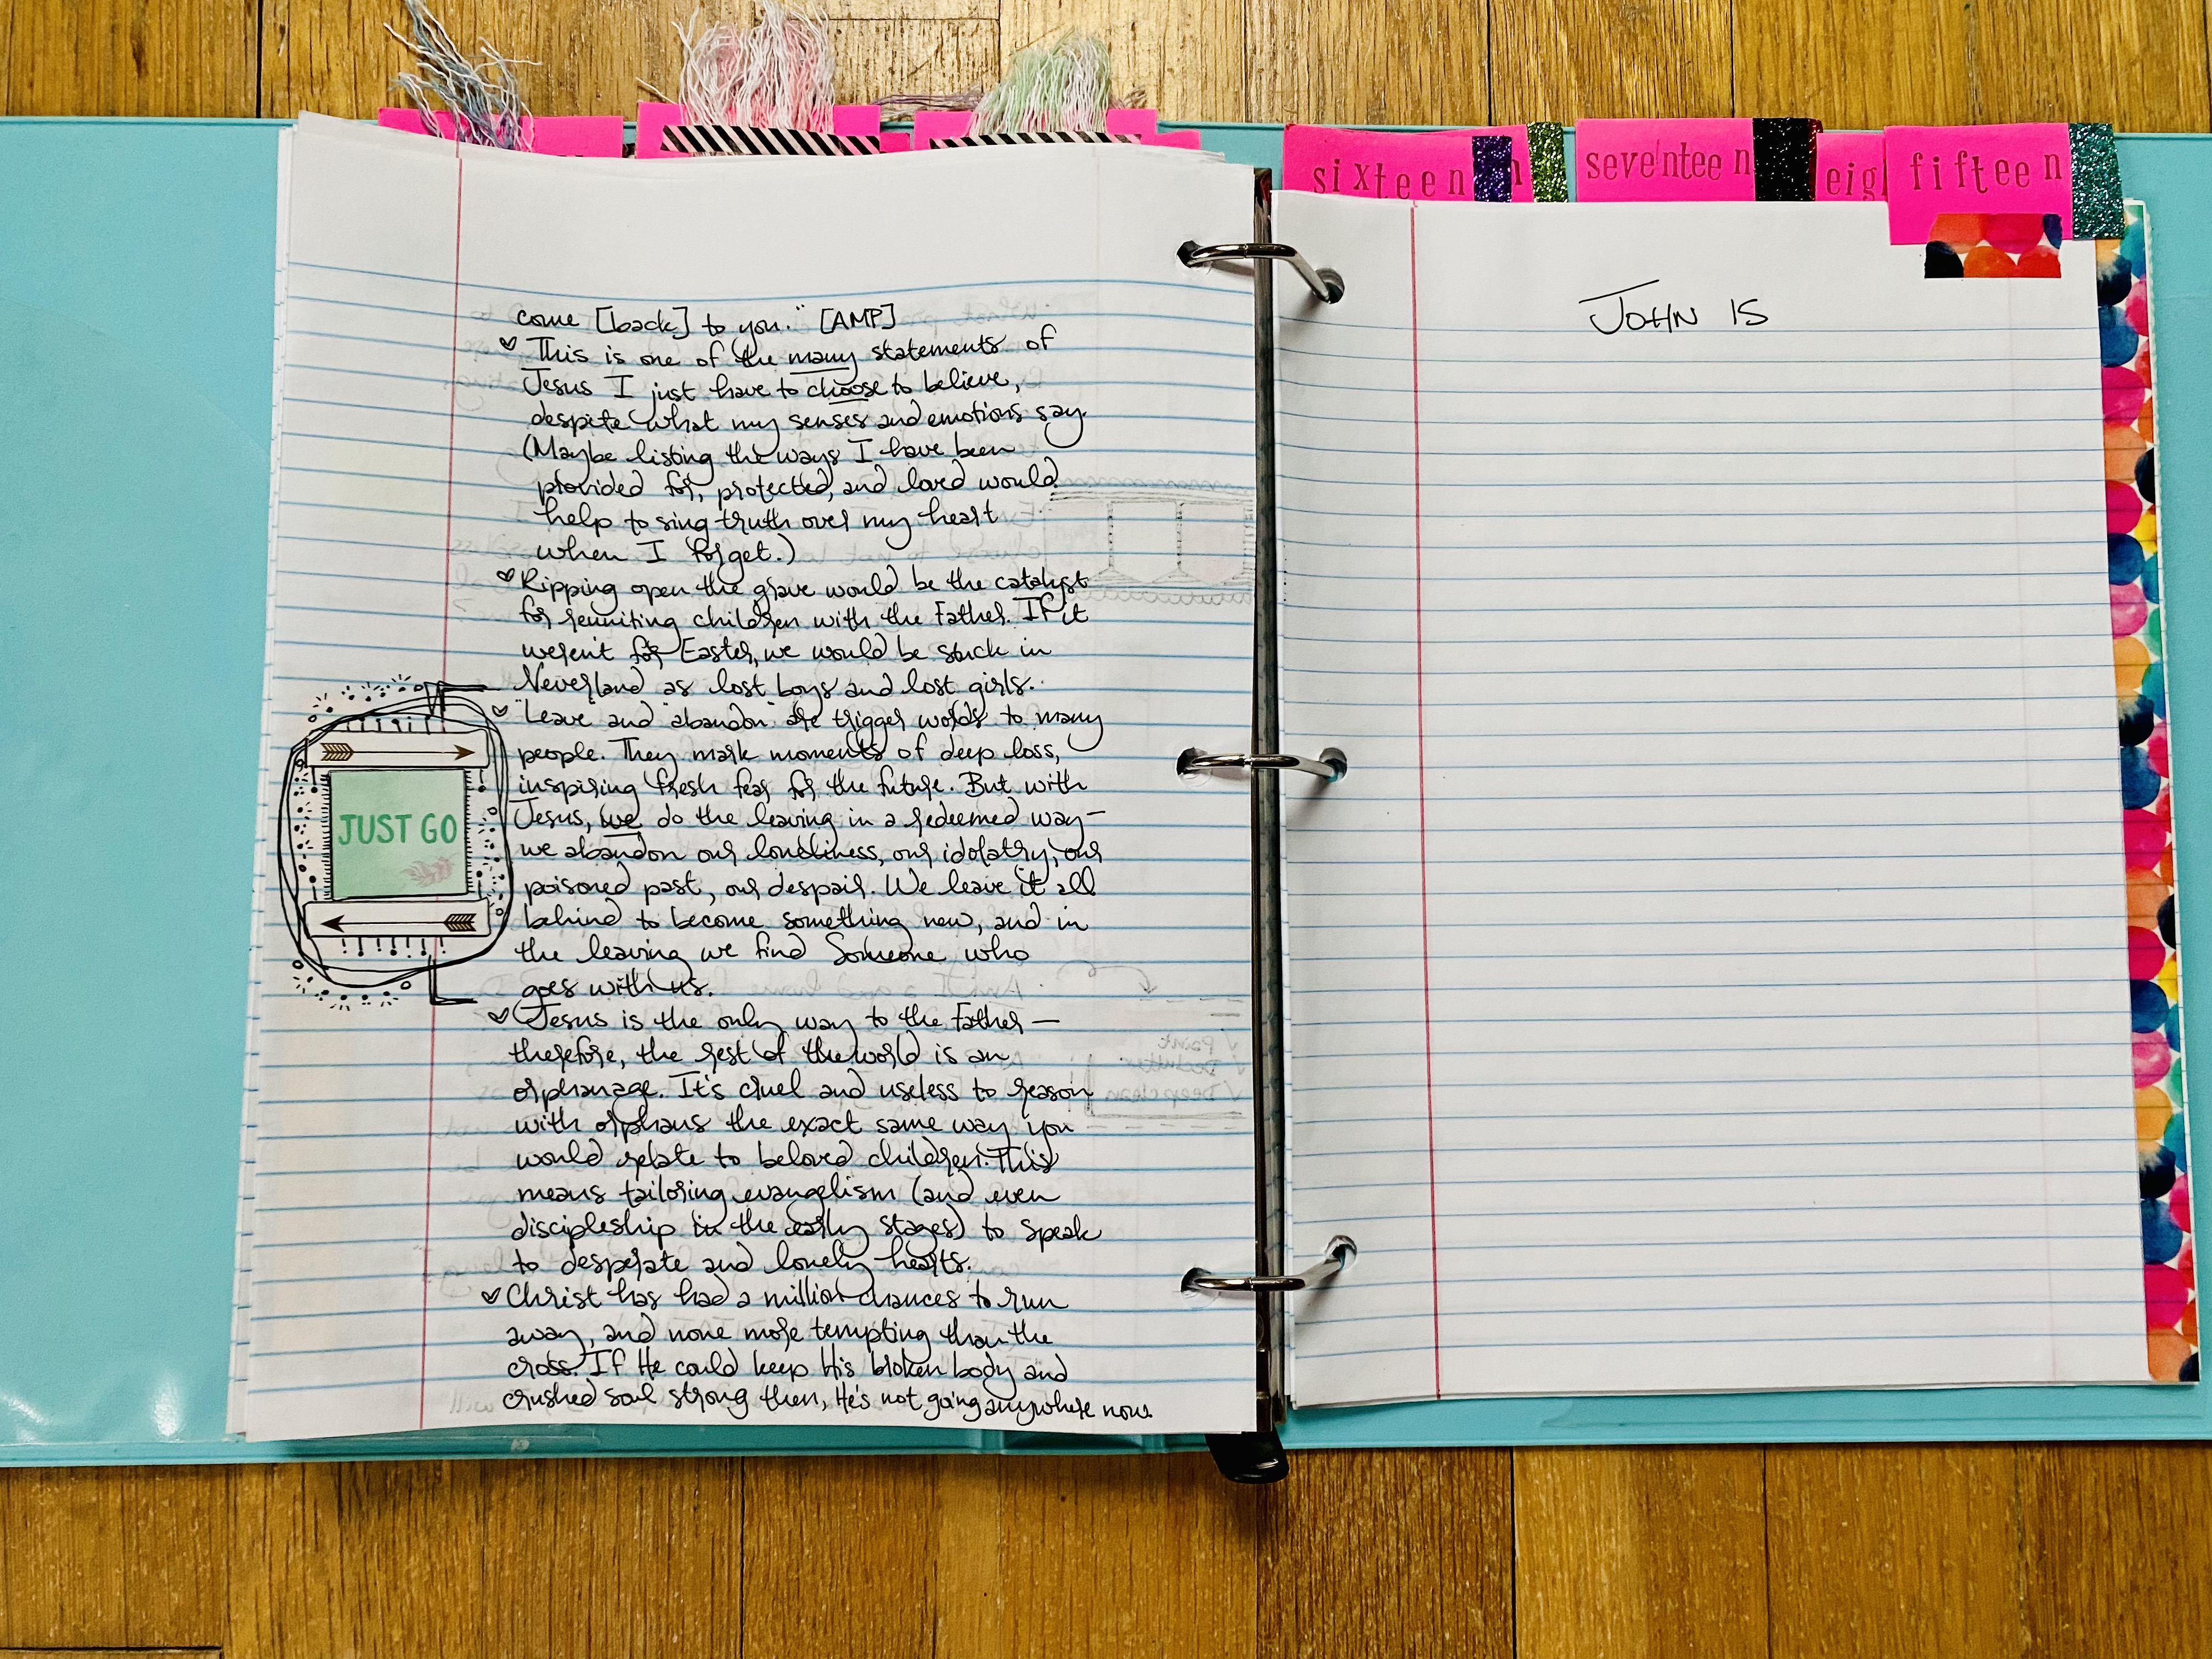 sixteen
seventeen
eig
fifteen
come [back] to you." [AMP]
This is one of the many statements of
Jesus I just have to choose to believe,
despite what my senses and emotions say.
(Maybe listing the ways I have been
provided for, protected, and loved would
help to sing truth over my heart
when I forget.)
Ripping open the grave would be the catalyst
for reuniting children with the Father. If it
weren't for Easter, we would be stuck in
Neverland as lost boys and lost girls.
"Leave" and "abandon" are trigger words to many
people. They mark moments of deep loss,
inspiring fresh fear for the future. But with
Jesus, we do the leaving in a redeemed way—
we abandon our loneliness, our idolatry, our
poisoned past, our despair. We leave it all
behind to become something new, and in
the leaving we find Someone who
goes with us.
Jesus is the only way to the Father—
therefore, the rest of the world is an
orphanage. It's cruel and useless to reason
with orphans the exact same way you
would relate to beloved children. This
means tailoring evangelism (and even
discipleship in the early stages) to speak
to desperate and lonely hearts.
Christ has had a million chances to run
away, and none more tempting than the
cross. If He could keep His broken body and
crushed soul strong then, He's not going anywhere now.
JUST GO
JOHN 15